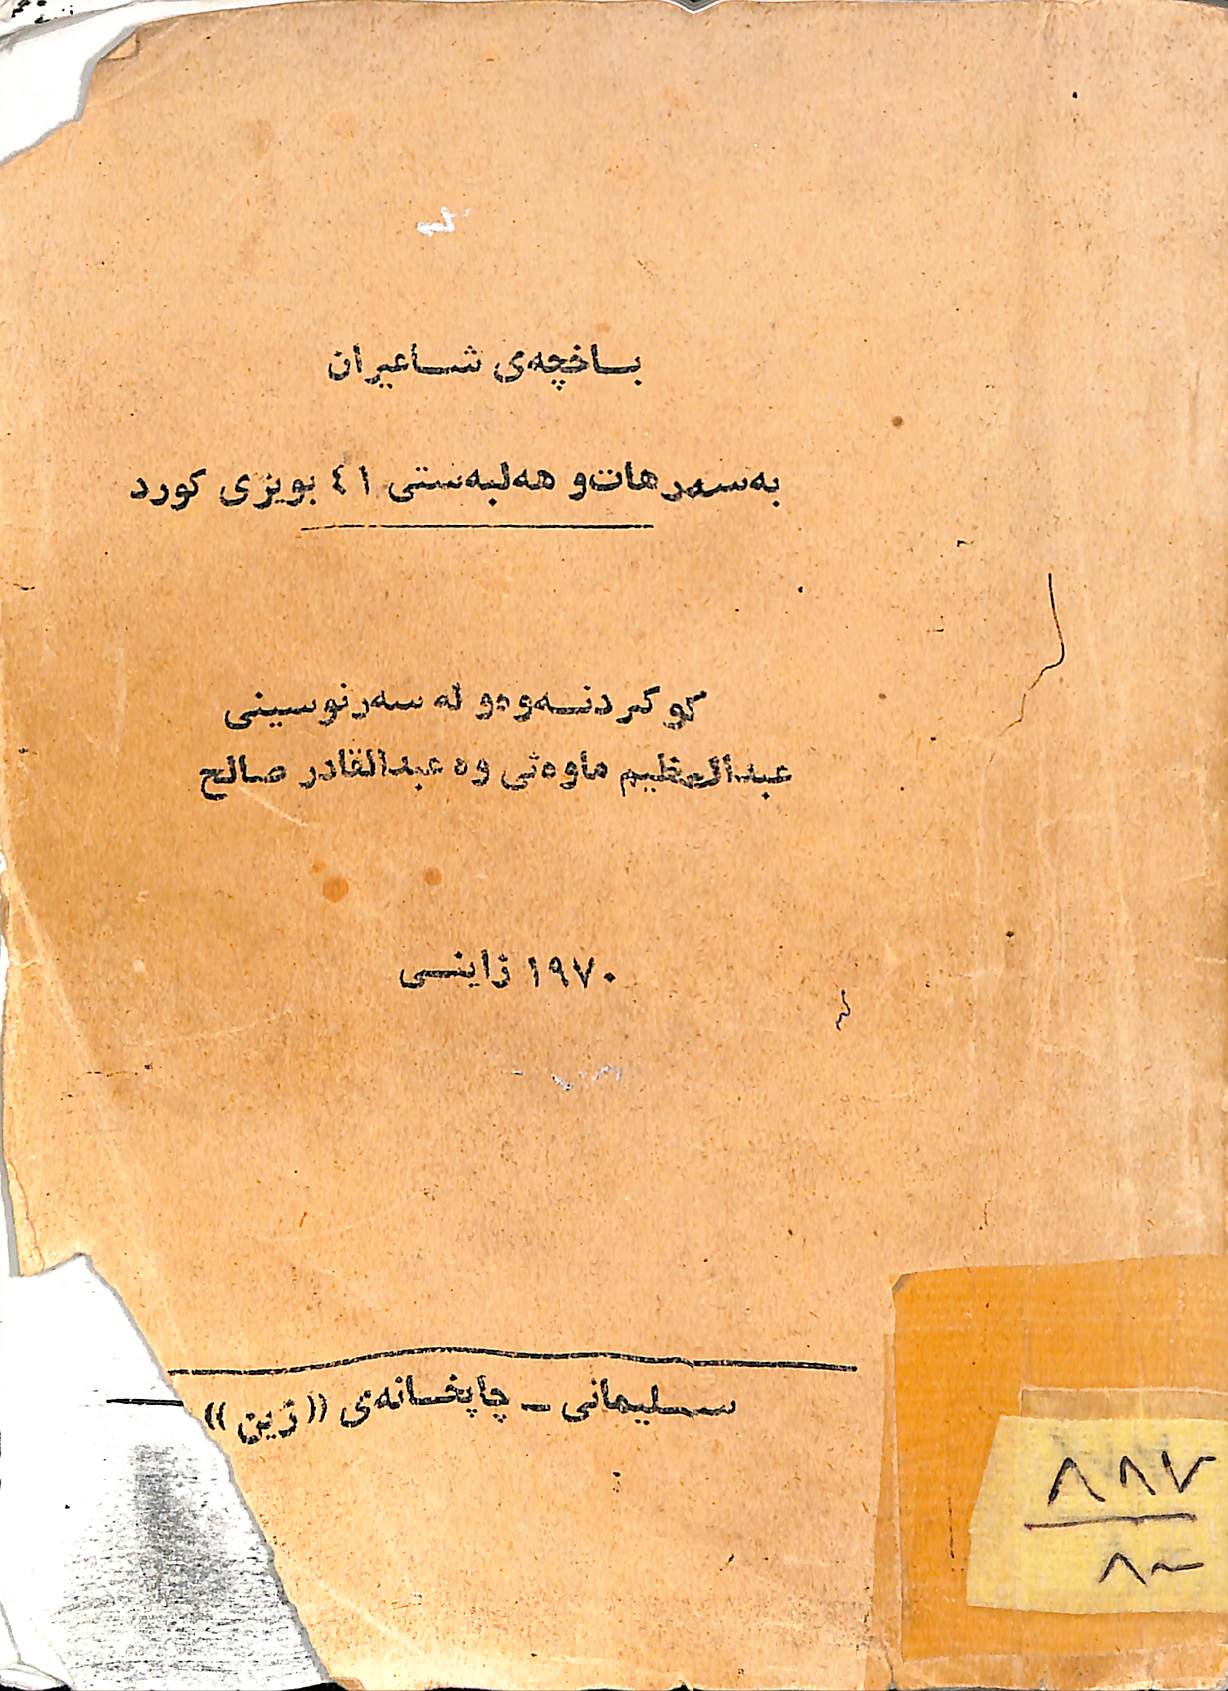 باخچەی شاعیران
بەسەرهات‌و هەلبەستی ٤١ بویژی کورد
کوکردنەوەو لە سەرنوسینی
عبدالعظیم ماوەتی وە عبدالقادر صالح
١٩٧٠ زاینی
سلیمانی ـ چاپخانەی ((ژین))
٨٨٧